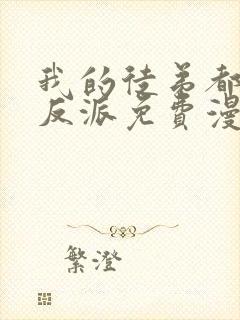 我的徒弟都
反派免費漫
繁澄